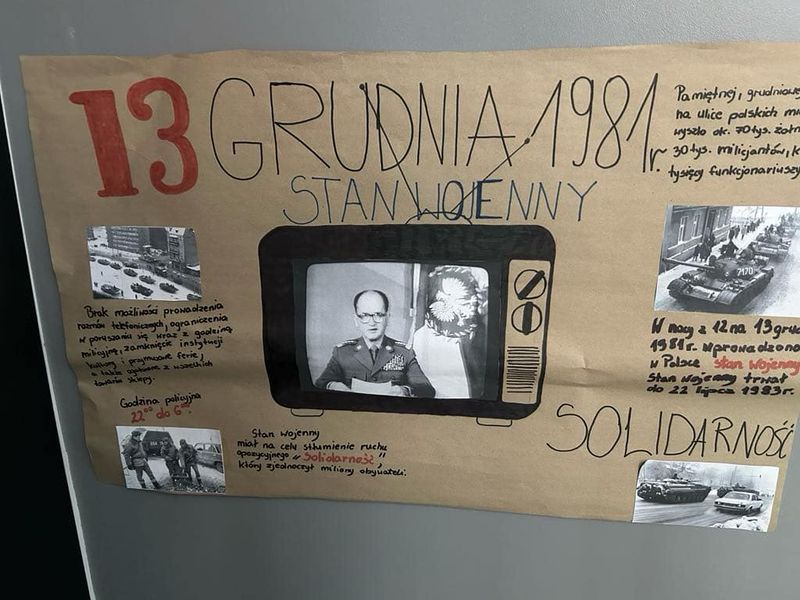 13 GRUDNIA 1981r.
STAN WOJENNY
Pamiętnej, grudniowe
na ulice polskich
wyszło ok. 70 tys. żoł
30 tys. milicjantów, k
tysięcy funkcjonariuszy
7170
Brak możliwości prowadzenia
rozmów telefonicznych, ograniczenia
w poruszaniu się wraz z godziną
milicyjną, zamknięcie instytucji
kultury i przymusowe ferie,
a także z wszelkich
towarów sklepy.
W nocy z 12 na 13 grud
1981r. wprowadzono
w Polsce stan wojenny
Stan wojenny trwał
do 22 lipca 1983r.
Godzina policyjna
22⁰⁰ do 6⁰⁰
Stan wojenny
miał na celu stłumienie ruchu
opozycyjnego „Solidarność",
który zjednoczył miliony obywateli.
SOLIDARNOŚĆ